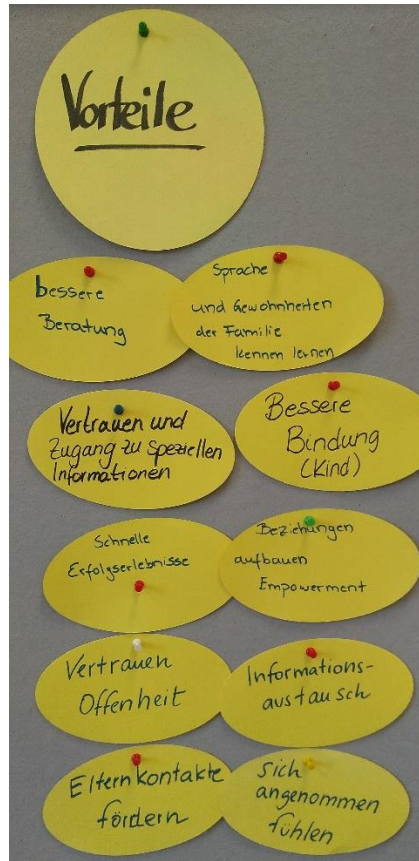 Vorteile
bessere
Beratung
Sprache
und Gewohnheiten
der Familie
kennen lernen
Vertrauen und
Zugang zu speziellen
Informationen
Bessere
Bindung
(Kind)
Schnelle
Erfolgserlebnisse
Beziehungen
aufbauen
Empowerment
Vertrauen
Offenheit
Informations-
austausch
Elternkontakte
fördern
Sich
angenommen
fühlen